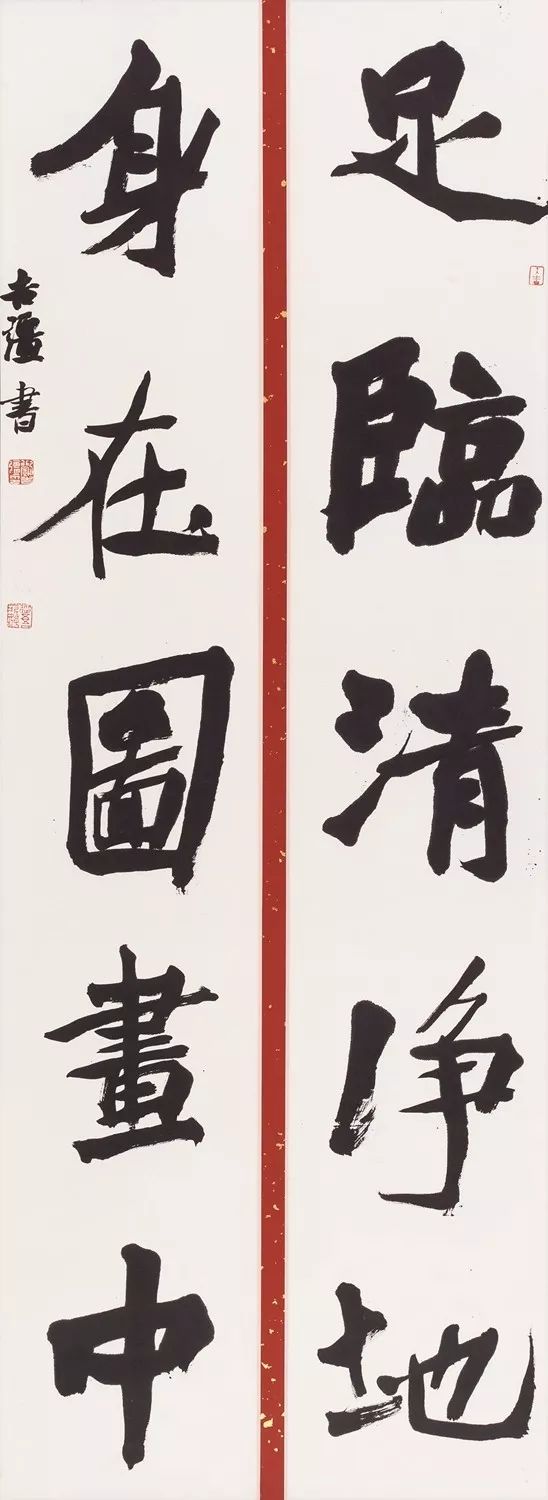 足臨清淨地
身在圖畫中
書